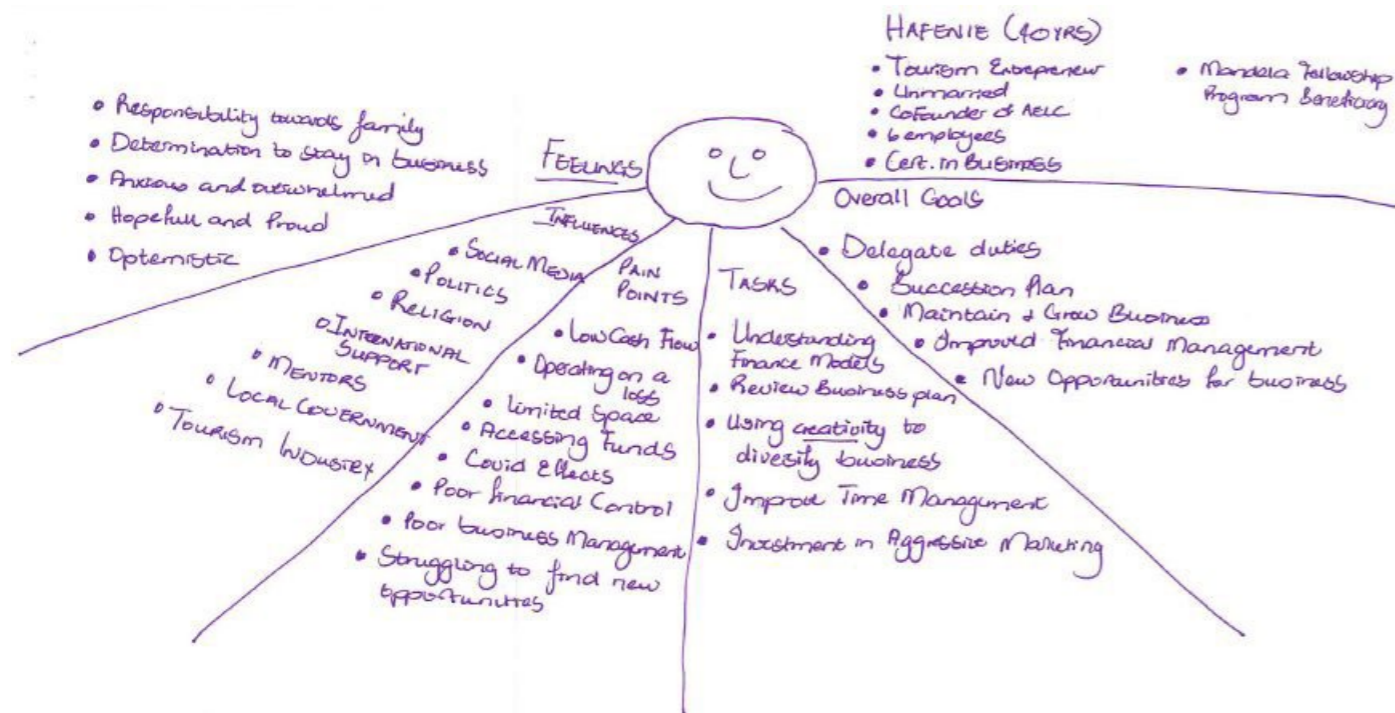 HAFENIE (40YRS)
• Tourism Entrepreneur
• Unmarried
• CoFounder of AELC
• 6 employees
• Cert. in Business
• Mandela Fellowship
Program Beneficiary
FEELINGS
• Responsibility towards family
• Determination to stay in business
• Anxious and overwhelmed
• Hopefull and Proud
• Optemistic
INFLUENCES
• SOCIAL MEDIA
• POLITICS
• RELIGION
• INTERNATIONAL
SUPPORT
• MENTORS
• LOCAL GOVERNMENT
• TOURISM INDUSTRY
PAIN
POINTS
• Low Cash Flow
• Operating on a
loss
• Limited Space
• Accessing Funds
• Covid Effects
• Poor financial Control
• Poor business Management
• Struggling to find new
opportunities
TASKS
• Understanding
Finance Models
• Review Business plan
• Using creativity to
diversify business
• Improve Time Management
• Investment in Aggressive Marketing
Overall Goals
• Delegate duties
• Succession Plan
• Maintain & Grow Business
• Improved Financial Management
• New Opportunities for business